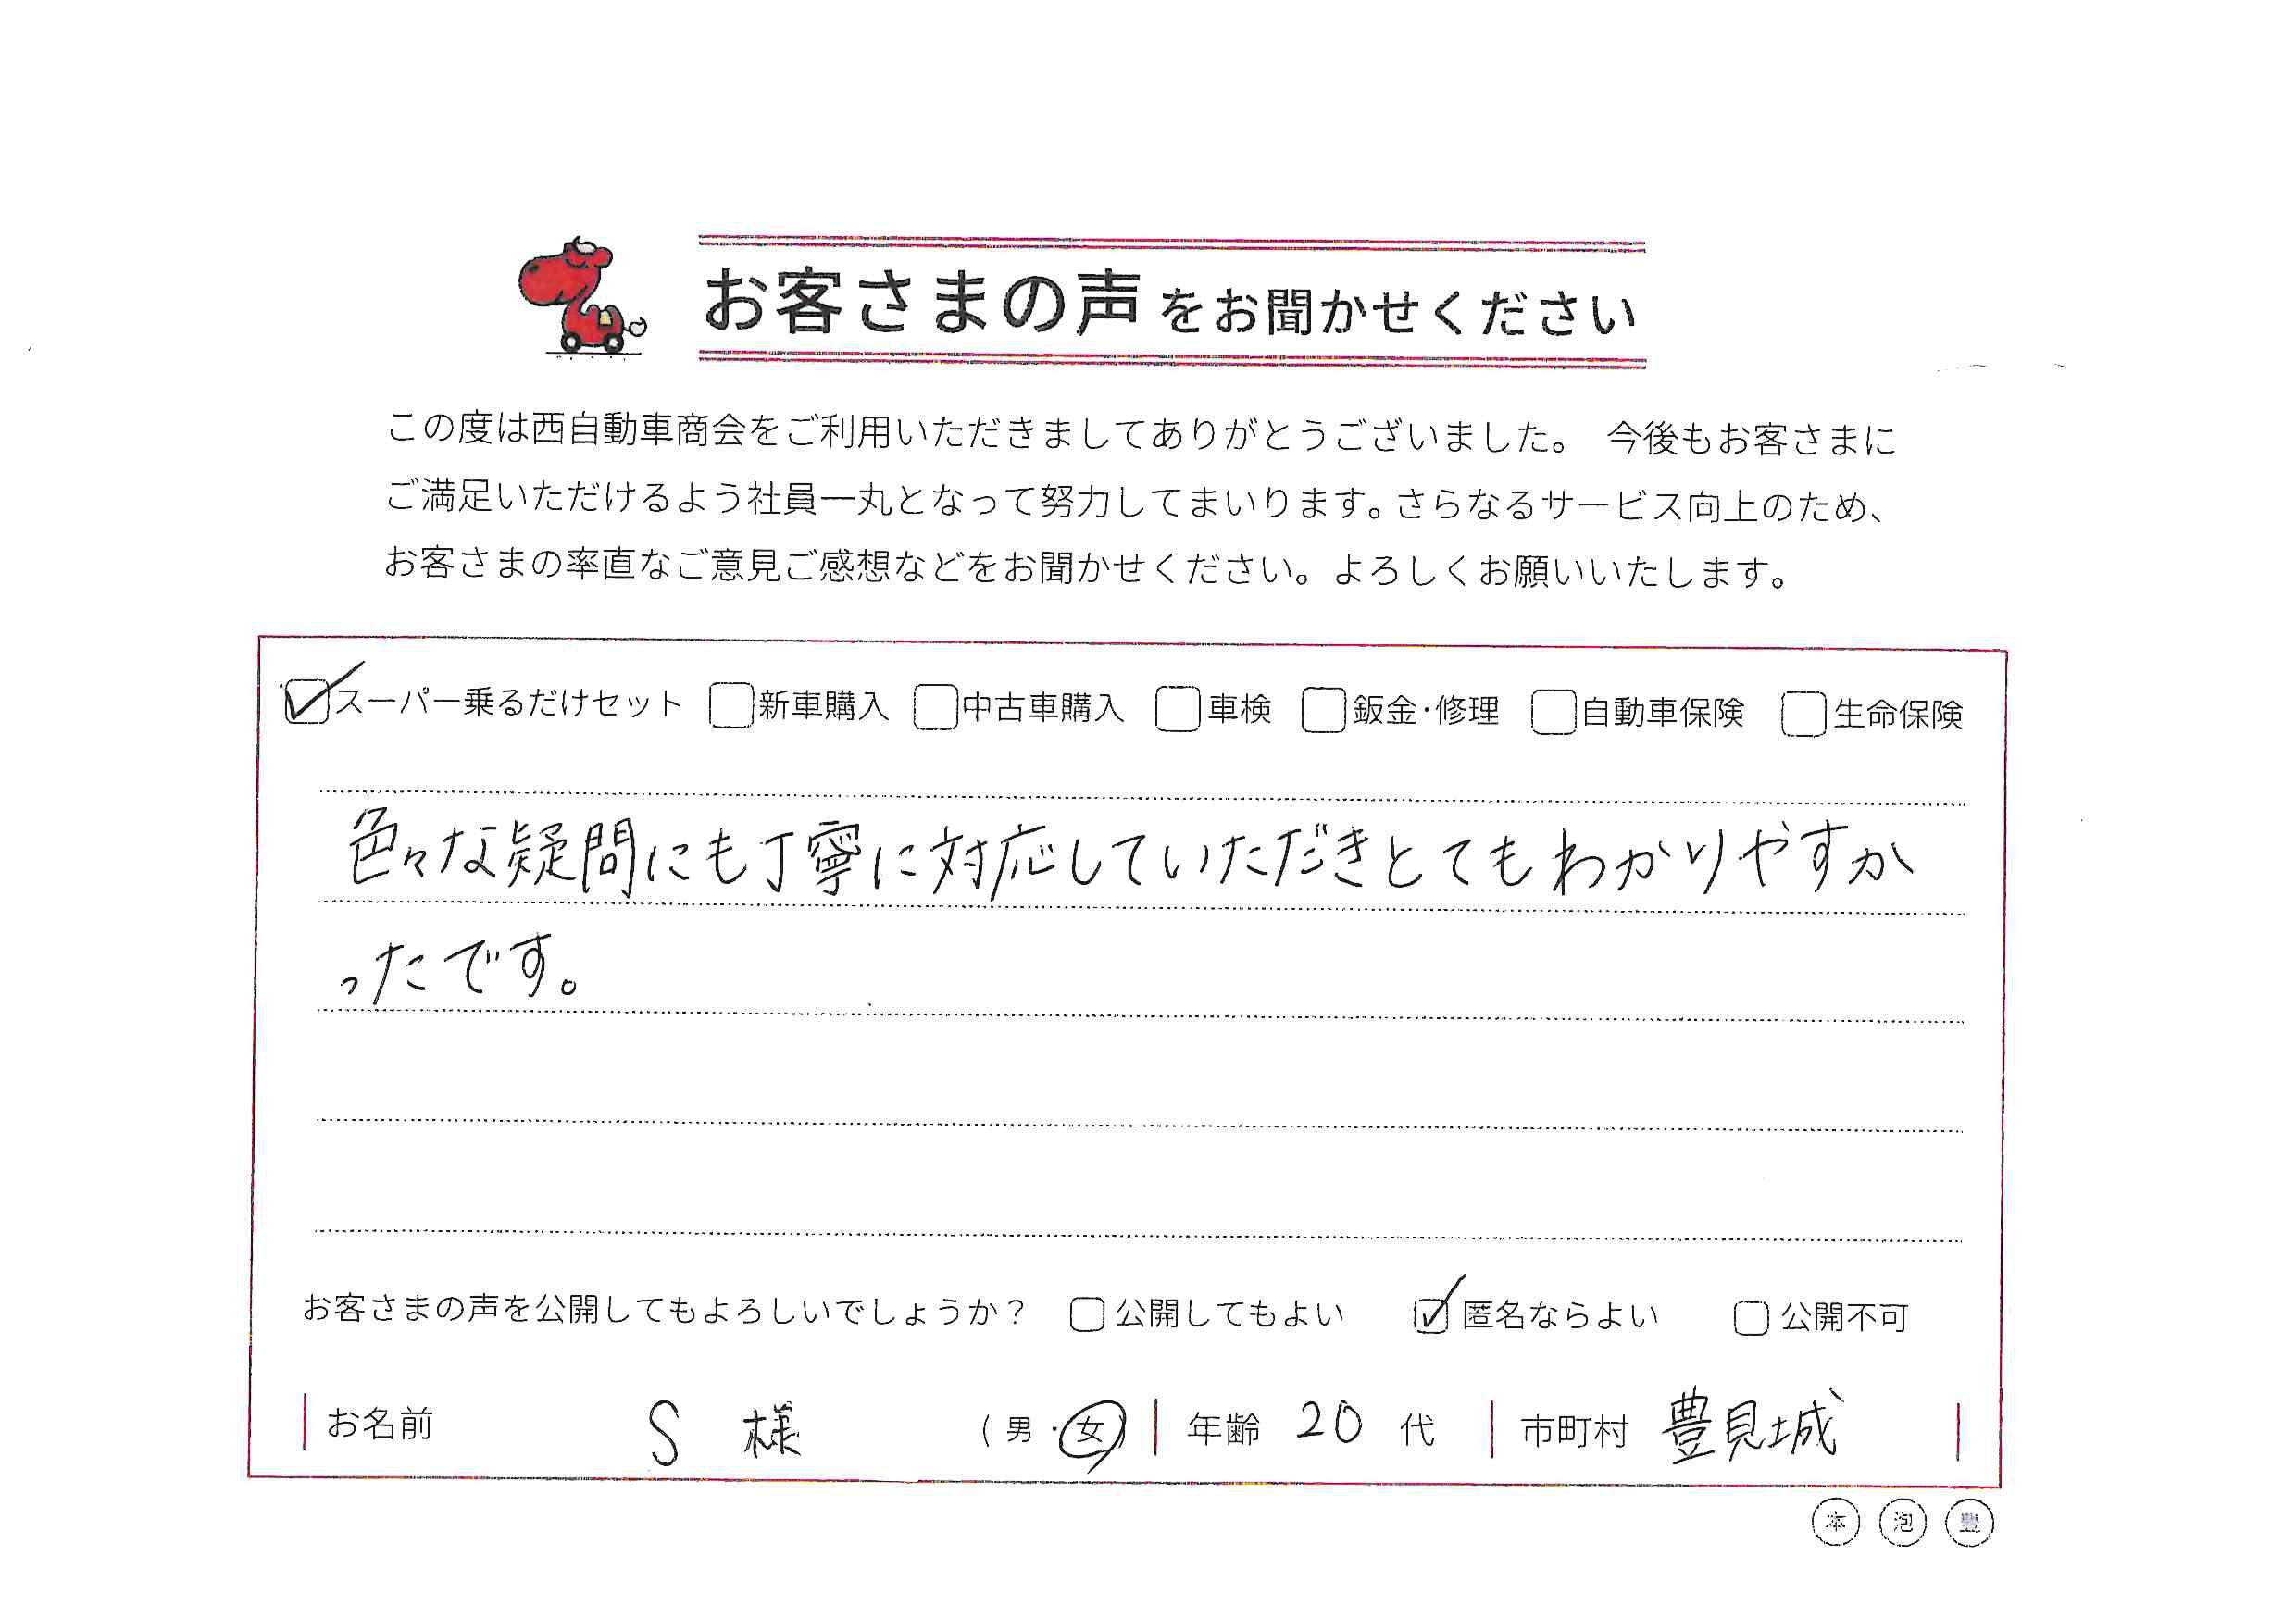 お客さまの声をお聞かせください
この度は西自動車商会をご利用いただきましてありがとうございました。 今後もお客さまに
ご満足いただけるよう社員一丸となって努力してまいります。さらなるサービス向上のため、
お客さまの率直なご意見ご感想などをお聞かせください。よろしくお願いいたします。
スーパー乗るだけセット 新車購入 中古車購入 車検 鈑金・修理 自動車保険 生命保険
色々な疑問にも丁寧に対応していただきとてもわかりやすか
ったです。
お客さまの声を公開してもよろしいでしょうか？ 公開してもよい 匿名ならよい 公開不可
お名前 S 様 （男・女） 年齢 20 代 市町村 豊見城
本 泡 豊